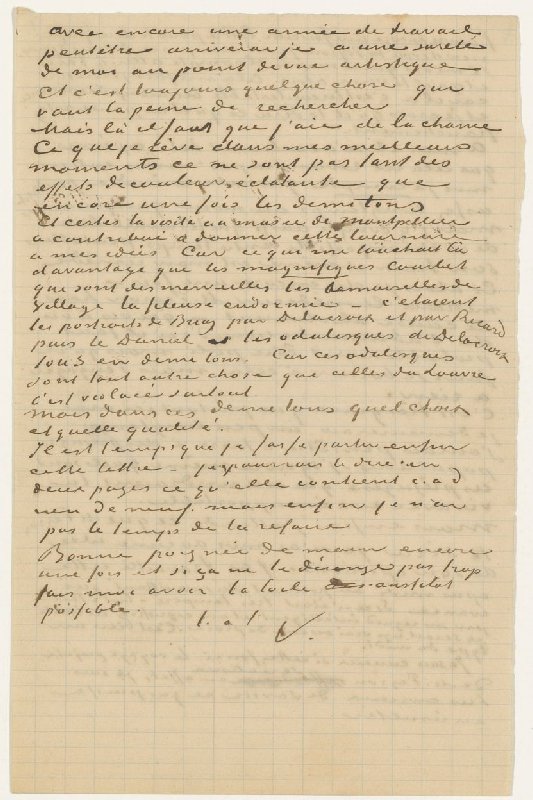 avec encore une année de travail
peutêtre arriverai je à une sureté
de moi au point de vue artistique
Et c'est toujours quelque chose qui
vaut la peine de rechercher
Mais là il faut que j'aie de la chance
Ce que je rève dans mes meilleurs
moments ce ne sont pas tant des
effets de couleur éclatante que
encore une fois les demi tons
Et certes la visite au musée de Montpellier
a contribué à donner cette tournure
à mes idées Car ce qui me touchait là
davantage que les magnifiques Courbet
que sont des merveilles les demoiselles de
village la fileuse endormie – c'étaient
les portraits de Bruyas par Delacroix et par Ricard
puis le Daniel et les odalisques de Delacroix
tous en demi tons. Car ces odalisques
sont tout autre chose que celles du Louvre
c'est violacé surtout
mais dans ces demi tons quel choix
et quelle qualité.
Il est temps que je fasse partir enfin
cette lettre – je pourrais te dire en
deux pages ce qu'elle contient c.a d
rien de neuf. mais enfin je n'ai
pas le temps de la refaire
Bonne poignée de main encore
une fois et si ça ne te dérange pas trop
fais moi avoir la toile aussitot
possible.
t. à t.
V.